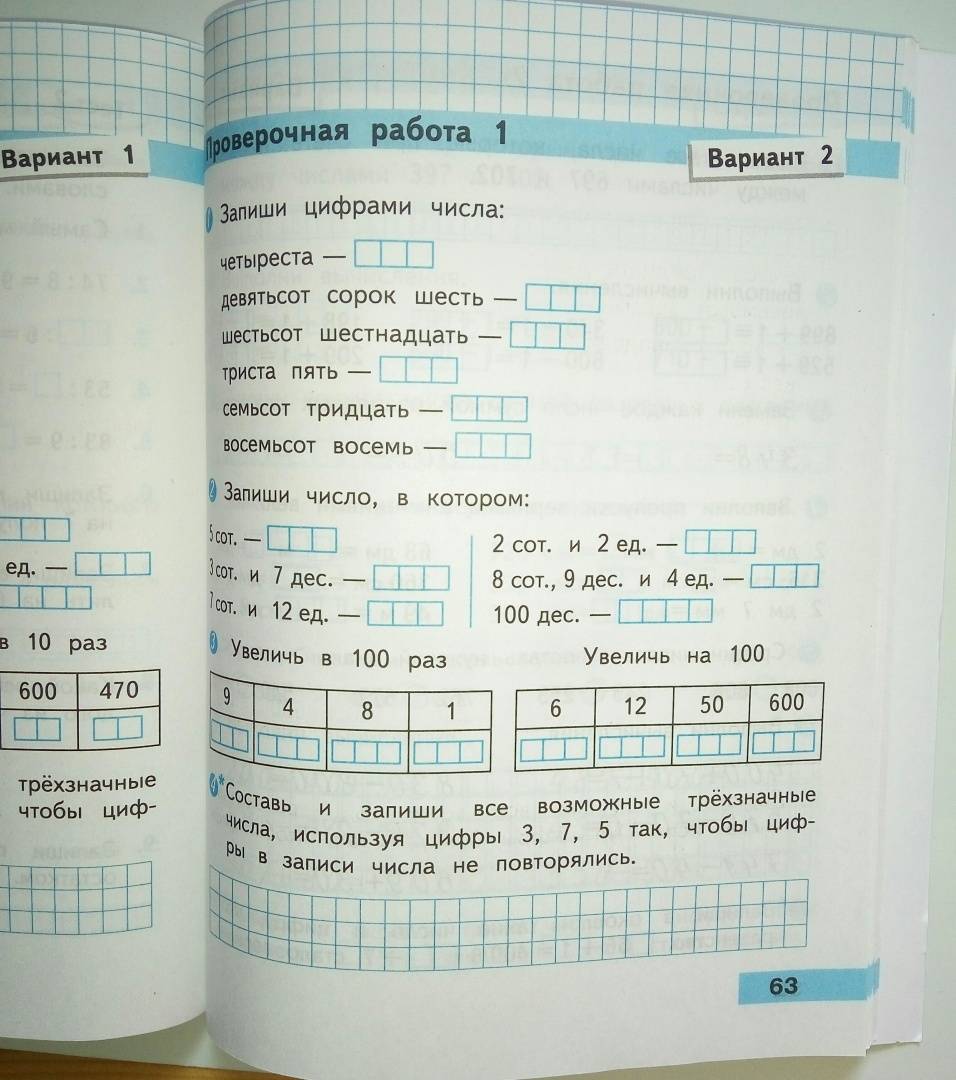 Вариант 1
ед. —
в 10 раз
600 470
трёхзначные
чтобы циф-
Проверочная работа 1
Вариант 2
1 Запиши цифрами числа:
четыреста —
девятьсот сорок шесть —
шестьсот шестнадцать —
триста пять —
семьсот тридцать —
восемьсот восемь —
2 Запиши число, в котором:
5 сот. —
3 сот. и 7 дес. —
7 сот. и 12 ед. —
2 сот. и 2 ед. —
8 сот., 9 дес. и 4 ед. —
100 дес. —
3 Увеличь в 100 раз
9 4 8 1
Увеличь на 100
6 12 50 600
4* Составь и запиши все возможные трёхзначные
числа, используя цифры 3, 7, 5 так, чтобы циф-
ры в записи числа не повторялись.
63